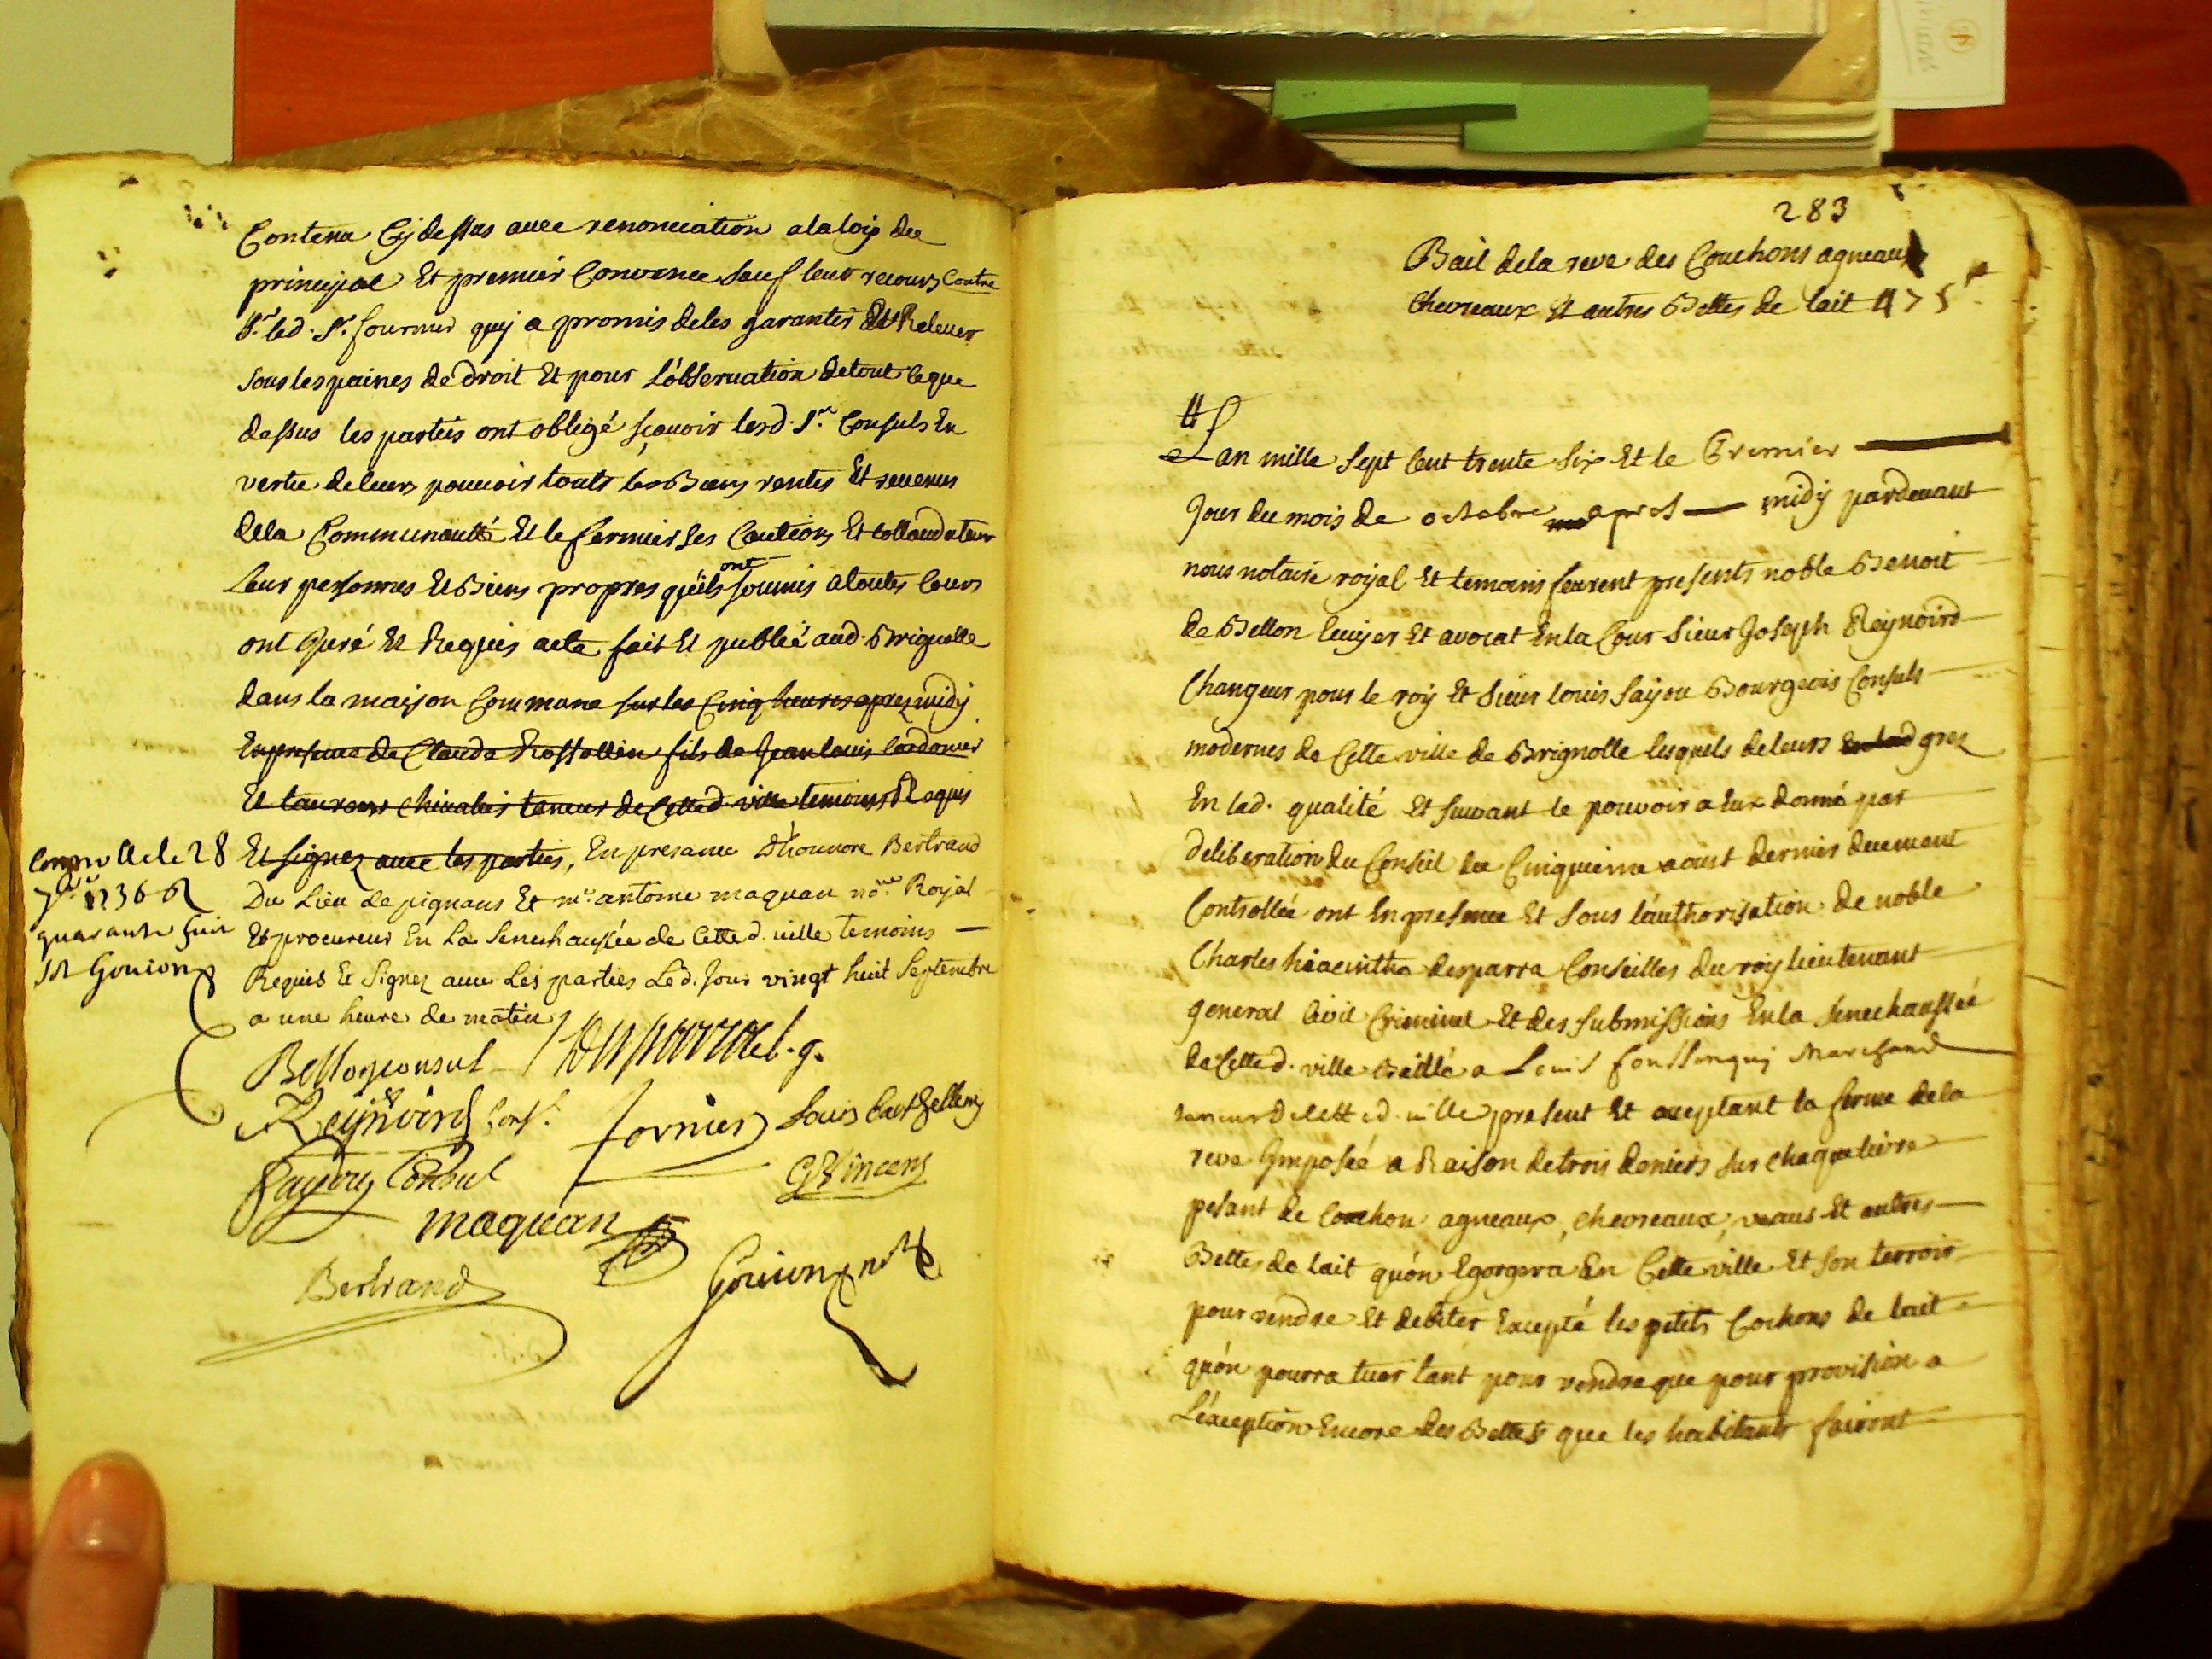 Contenu Cy dessus avec renonciation a la loix du
principal Et premier Convenu sauf leur recours Contre
led. Sr. fournier quy a promis de les garantir Et Relever
sous les paines de droit Et pour L'observation de tout ce que
dessus les parties ont obligé sçavoir lesd. Srs. Consuls En
vertu de leurs pouvoir touts les Biens rentes Et revenus
de la Communauté Et le fermier ses Cautions Et collaudateur
Leur personnes Et Biens propres qu'ils ont soumis a toutes Cours
ont Juré Et Requis acte fait Et publié aud. Brignolle
dans la maison Commune sur les Cinq heures apres midy
En presence de Claude Rossollin fils de Jean louis Cordonier
Et Chivalier taneur de Cette d. ville temoins Requis
Et signez avec les parties, En presance D'honnore Bertrand
Du Lieu de pignans Et me. antoine maquan nore. Royal
Et procureur En La Senechaussée de Cette d. ville temoins
Requis Et Signez avec Les parties Led. Jour vingt huit Septembre
a une heure de matin
Conprollé le 28
7bre 1736
quarante
Gouion
Bellon consul Desparra l. g.
Reynoird Cons. fornier Louis
Sayou Consul Vincens
maquan
Bertrand Gouion nre
283
Bail de la reve des Couchons agneaux
Chevreaux Et autres Bettes de lait 475
Lan mille Sept Cent trente Six Et le Premier
Jour du mois de octobre apres midy pardevant
nous notaire royal Et temoins feurent presents noble Benoit
de Bellon Ecuyer Et avocat En la Cour Sieur Joseph Reynoird
Changeur pour le roy Et Sieur louis Sayou Bourgeois Consuls
modernes de Cette ville de Brignolle lesquels de leurs En lad grez
En lad. qualité Et suivant le pouvoir a Eux donné par
deliberation du Conseil du Cinquieme aoust dernier deuement
Controllée ont En presence Et sous l'authorisation de noble
Charles hiacinthe desparra Conseiller du roy lieutenant
general Civil Criminel Et des submissions En la sénechaussée
de Cette d. ville Baillé a Louis fousssenquy Marchand
taneur de Cette d. ville present Et aceptant la ferme de la
reve Jmposée a Raison de trois deniers sur chaque livre
pesant de Couchon agneaux, chevreaux, veaus Et autres
Bettes de lait qu'on Egorgera En Cette ville Et son terroir
pour vendre Et debiter Excepté les petits Cochons de lait
qu'on pourra tuer tant pour vendre que pour provision a
L'exception Encore des Bettes que les habitants fairont